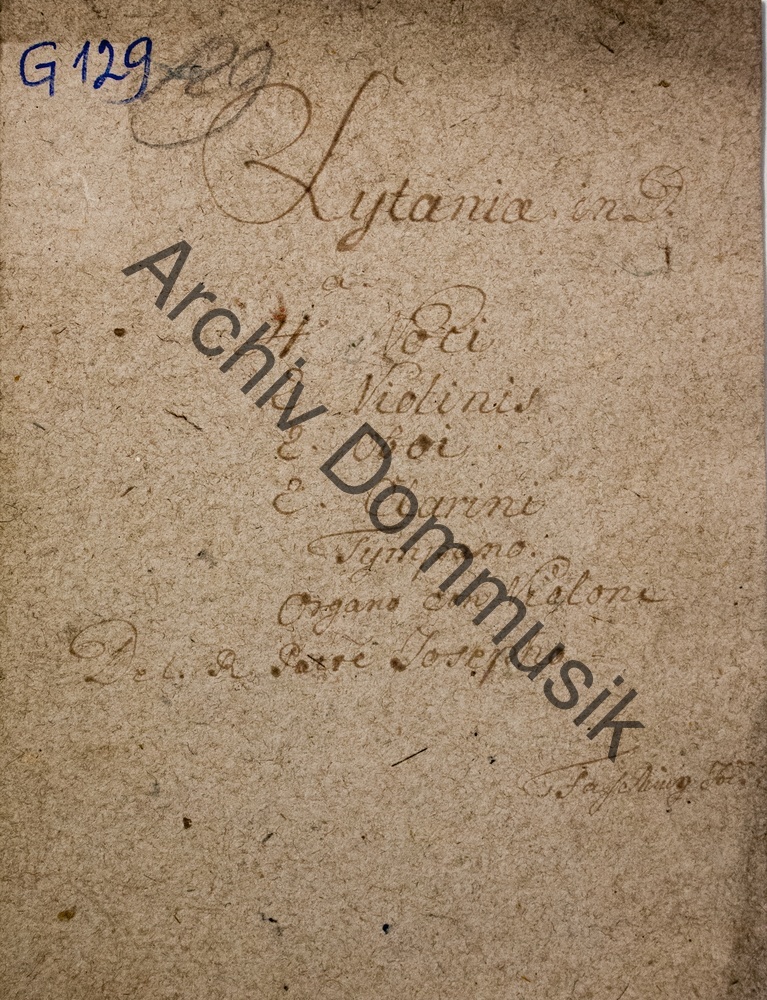 G 129
129
Lytaniæ in D.
a
4 Voci
2 Violinis
2. Oboi
2. Clarini
Tympano.
Organo con Violone
Del. R. Padre Josepho
Archiv Dommusik